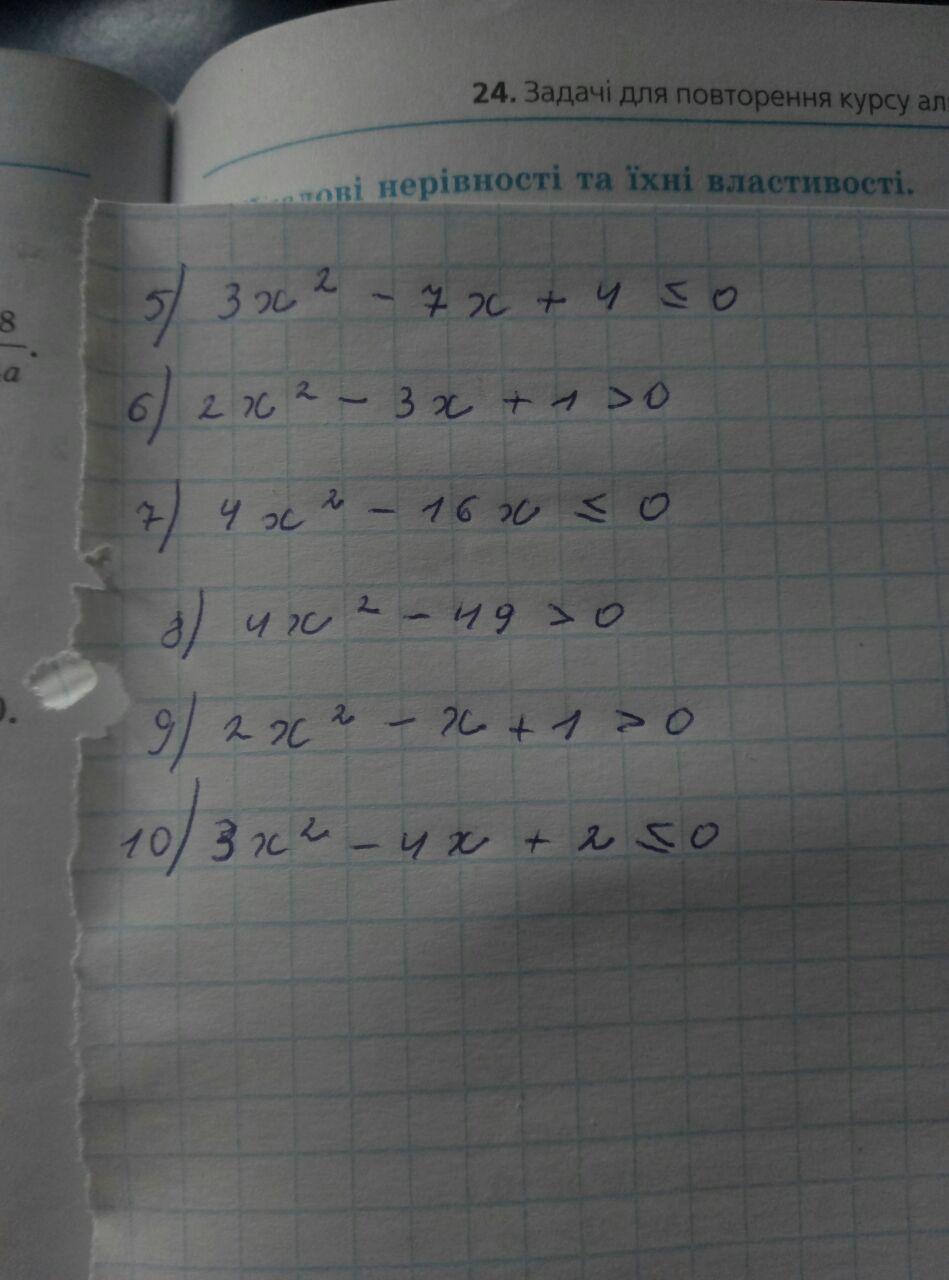 24. Задачі для повторення курсу ал
нерівності та їхні властивості.
8
a
.
5) 3x² - 7x + 4 ≤ 0
6) 2x² - 3x + 1 > 0
7) 4x² - 16x ≤ 0
8) 4x² - 49 > 0
9) 2x² - x + 1 > 0
10) 3x² - 4x + 2 ≤ 0